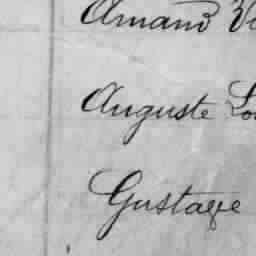 Amand V
Auguste Lo
Gustave